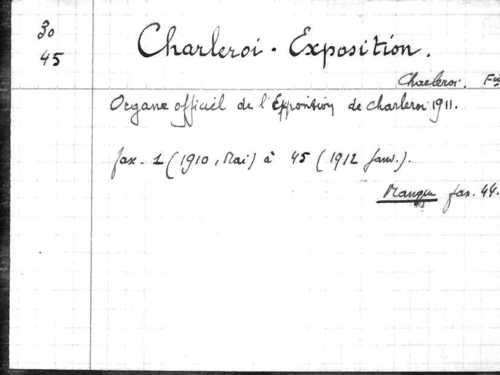 30
45
Charleroi - Exposition.
Charleroi.
Organe officiel de l'Exposition de Charleroi 1911.
fax. 1 (1910, Mai) à 45 (1912 Janv.).
Manque fax. 44.